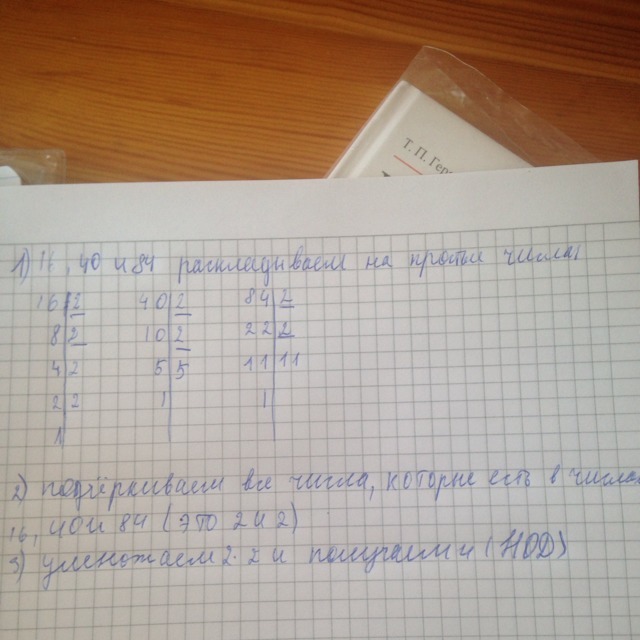 Т. П. Гер
1) 16, 40 и 84 раскладываем на простые числа
16 | 2   40 | 2   84 | 2
8 | 2   10 | 2   22 | 2
4 | 2   5 | 5   11 | 11
2 | 2   1 |   1 |
1 |
2) подчёркиваем все числа, которые есть в числах
16, 40 и 84 (это 2 и 2)
3) умножаем 2·2 и получаем 4 (НОД)